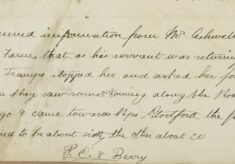 ceived information from Mr Ashwell
Farm, that, as his servant was returnin
Tramps stopped her and asked her fo
they saw some coming along the Roa
go & came towards Bps Stortford the f
sed to be about sixty the other about 20
P. C. Perry